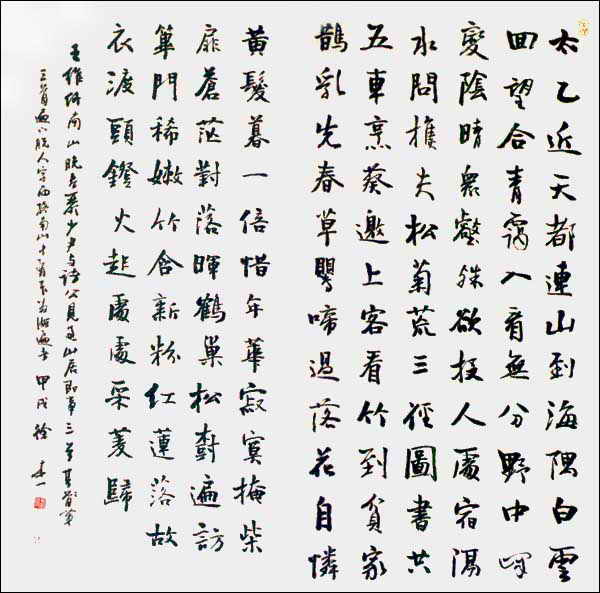 太乙近天都連山到海隅白雲
回望合青靄入看無分野中峰
變陰晴衆壑殊欲投人處宿隔
水問樵夫松菊荒三徑圖書共
五車烹葵邀上客看竹到貧家
鵲乳先春草鶯啼過落花自憐
黃髮暮一倍惜年華寂寞掩柴
扉蒼茫對落暉鶴巢松樹遍訪
蓽門稀嫩竹含新粉紅蓮落故
衣渡頭鐙火起處處采菱歸
王維終南山晚春嚴少尹与諸公見過山居即事三首
甲戌徐